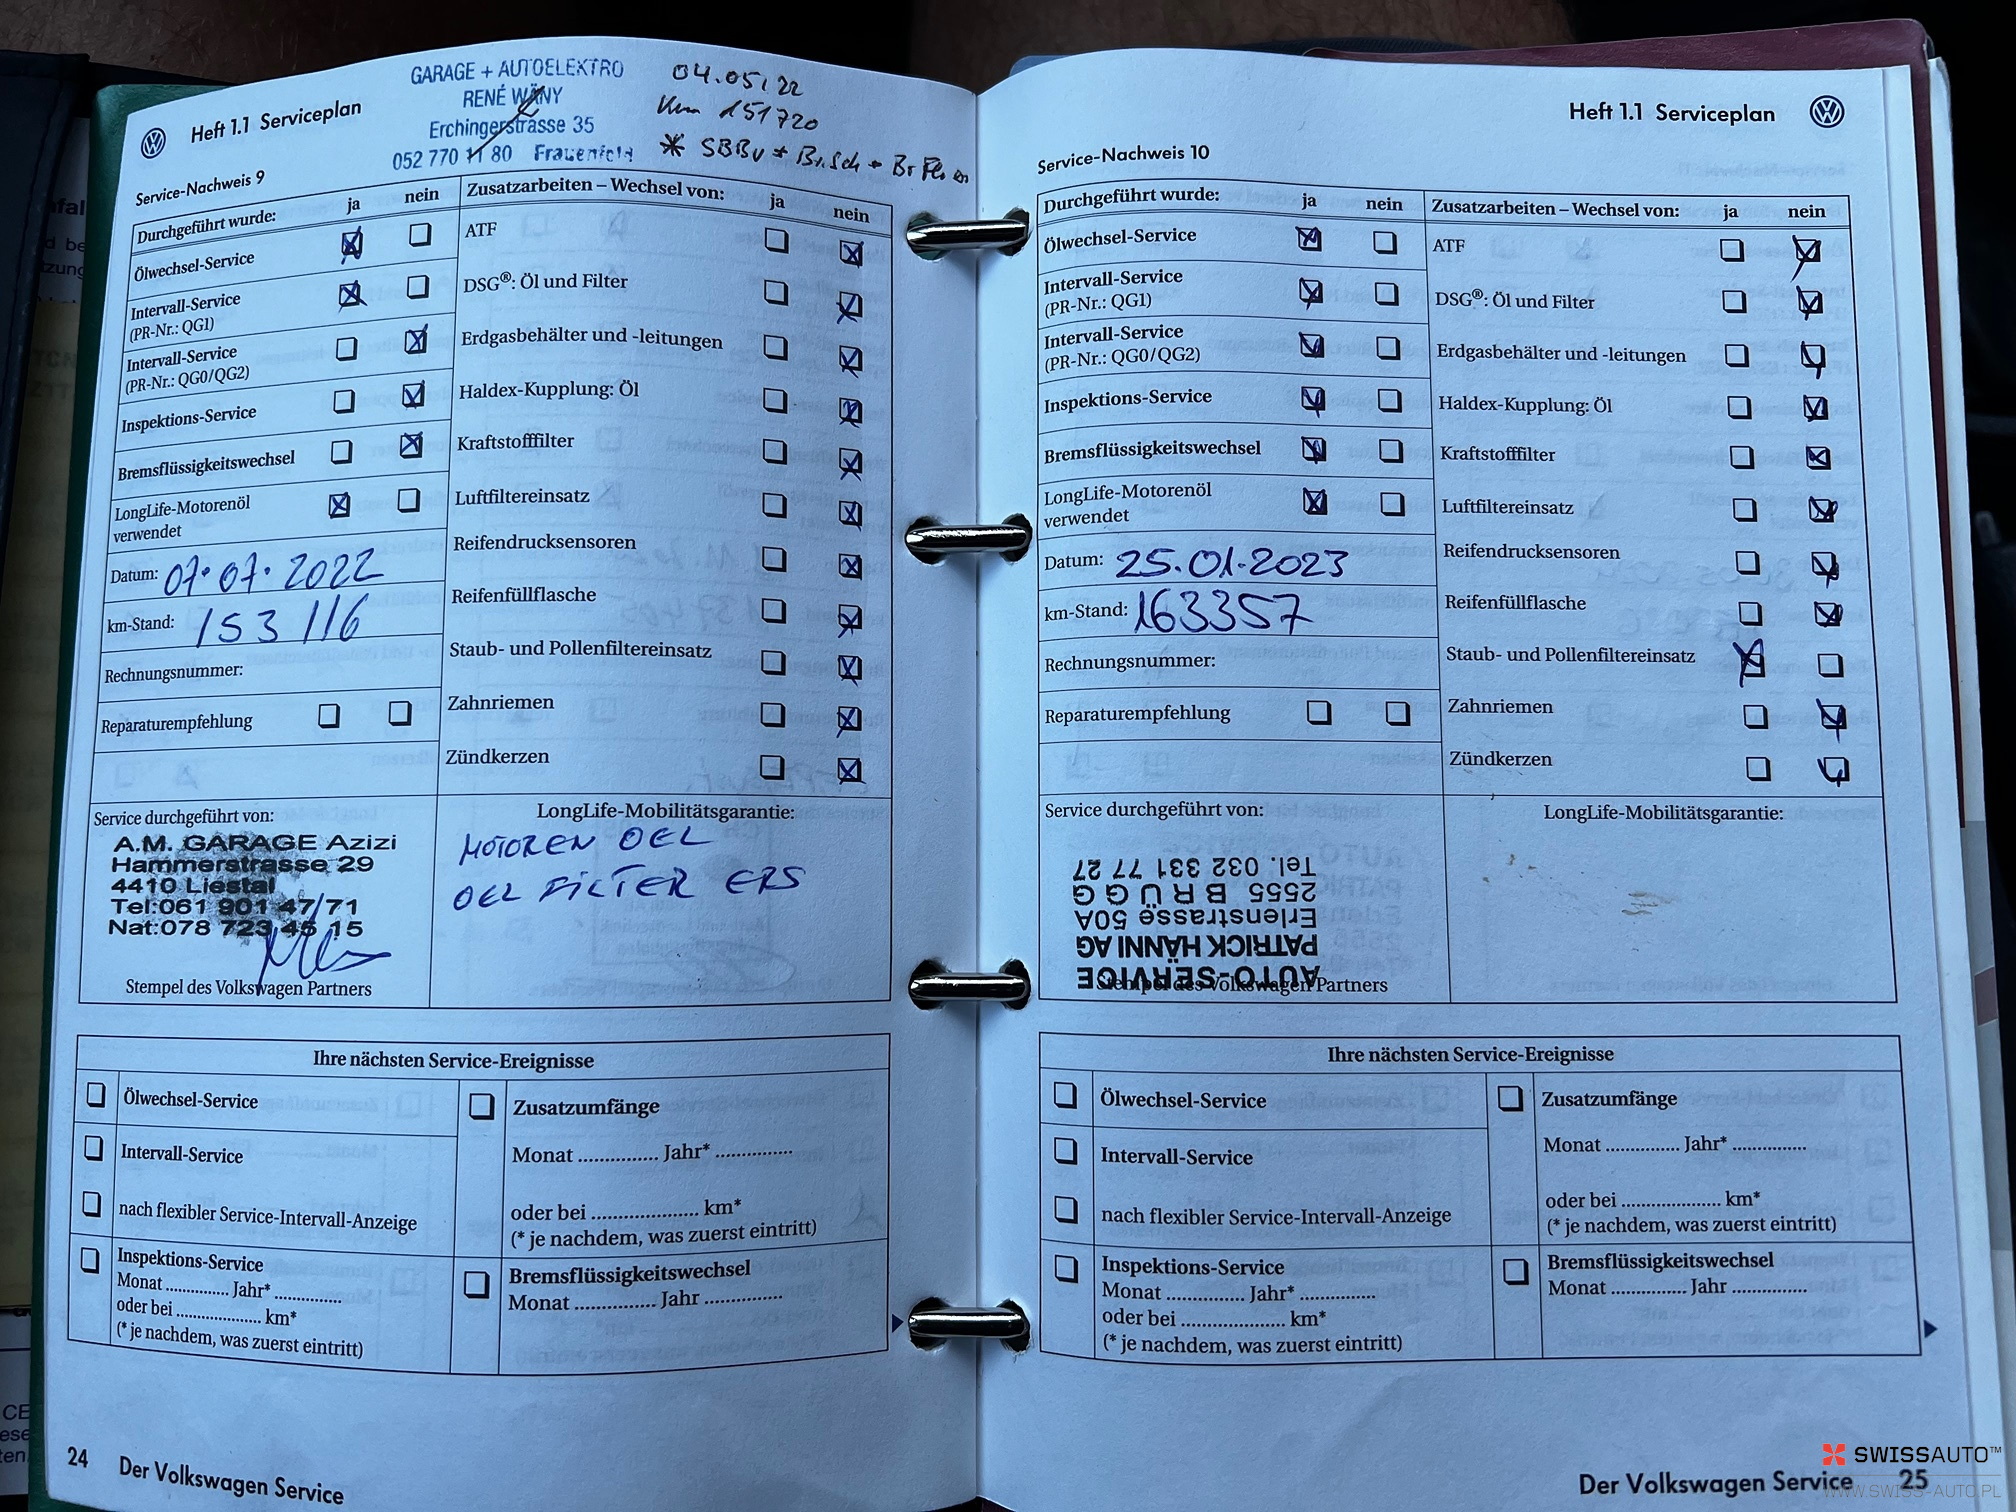 Heft 1.1 Serviceplan
GARAGE + AUTOELEKTRO
RENÉ WÄNY
Erchingerstrasse 35
052 770 11 80 Frauenfeld
04.05.22
Km 151720
* SBBv + Br.Sch + Br Fl.
Service-Nachweis 9
Durchgeführt wurde: ja nein
Ölwechsel-Service
Intervall-Service
(PR-Nr.: QG1)
Intervall-Service
(PR-Nr.: QG0/QG2)
Inspektions-Service
Bremsflüssigkeitswechsel
LongLife-Motorenöl
verwendet
Datum: 07.07.2022
km-Stand: 153116
Rechnungsnummer:
Reparaturempfehlung
Zusatzarbeiten – Wechsel von: ja nein
ATF
DSG®: Öl und Filter
Erdgasbehälter und -leitungen
Haldex-Kupplung: Öl
Kraftstofffilter
Luftfiltereinsatz
Reifendrucksensoren
Reifenfüllflasche
Staub- und Pollenfiltereinsatz
Zahnriemen
Zündkerzen
Service durchgeführt von:
A.M. GARAGE Azizi
Hammerstrasse 29
4410 Liestal
Tel:061 901 47/71
Nat:078 723 45 15
Stempel des Volkswagen Partners
LongLife-Mobilitätsgarantie:
MOTOREN OEL
OEL FILTER ERS
Ihre nächsten Service-Ereignisse
Ölwechsel-Service
Intervall-Service
nach flexibler Service-Intervall-Anzeige
Inspektions-Service
Monat ............. Jahr* ..............
oder bei .................. km*
(* je nachdem, was zuerst eintritt)
Zusatzumfänge
Monat .............. Jahr* ..............
oder bei .................... km*
(* je nachdem, was zuerst eintritt)
Bremsflüssigkeitswechsel
Monat .............. Jahr ..............
24 Der Volkswagen Service
Heft 1.1 Serviceplan
Service-Nachweis 10
Durchgeführt wurde: ja nein
Ölwechsel-Service
Intervall-Service
(PR-Nr.: QG1)
Intervall-Service
(PR-Nr.: QG0/QG2)
Inspektions-Service
Bremsflüssigkeitswechsel
LongLife-Motorenöl
verwendet
Datum: 25.01.2023
km-Stand: 163357
Rechnungsnummer:
Reparaturempfehlung
Zusatzarbeiten – Wechsel von: ja nein
ATF
DSG®: Öl und Filter
Erdgasbehälter und -leitungen
Haldex-Kupplung: Öl
Kraftstofffilter
Luftfiltereinsatz
Reifendrucksensoren
Reifenfüllflasche
Staub- und Pollenfiltereinsatz
Zahnriemen
Zündkerzen
Service durchgeführt von:
AUTO-SERVICE
PATRICK HÄNNI AG
Erlenstrasse 50A
2555 BRÜGG
Tel. 032 331 77 27
Stempel des Volkswagen Partners
LongLife-Mobilitätsgarantie:
Ihre nächsten Service-Ereignisse
Ölwechsel-Service
Intervall-Service
nach flexibler Service-Intervall-Anzeige
Inspektions-Service
Monat .............. Jahr* ..............
oder bei .................... km*
(* je nachdem, was zuerst eintritt)
Zusatzumfänge
Monat .............. Jahr* ..............
oder bei .................... km*
(* je nachdem, was zuerst eintritt)
Bremsflüssigkeitswechsel
Monat .............. Jahr ..............
Der Volkswagen Service 25
SWISSAUTO™
WWW.SWISS-AUTO.PL